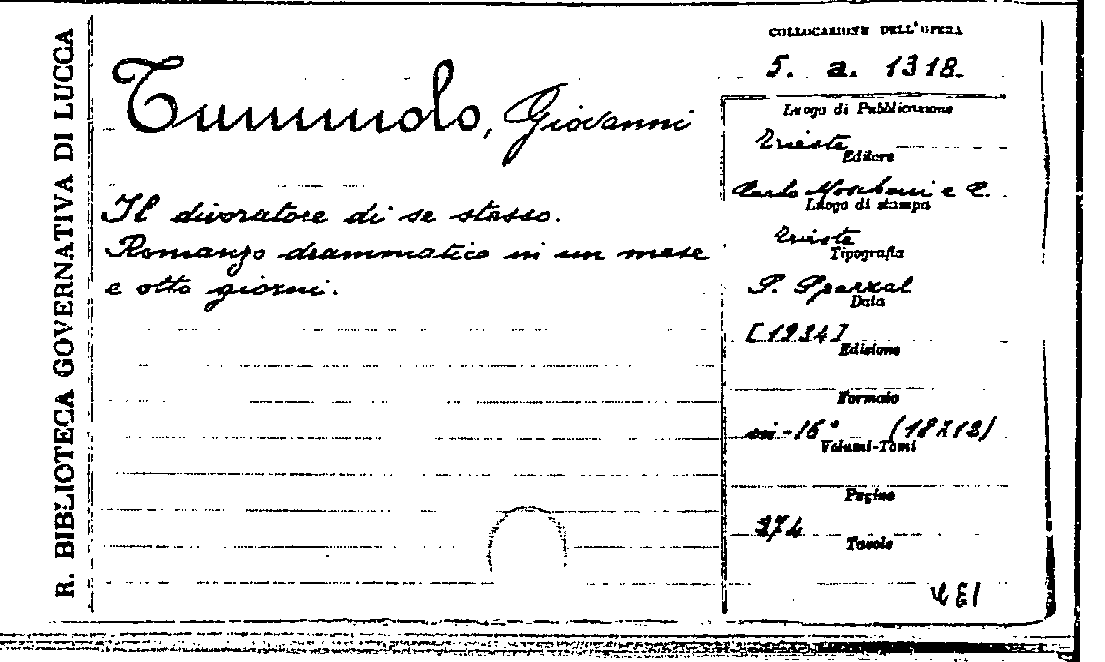 R. BIBLIOTECA GOVERNATIVA DI LUCCA
Tummolo, Giovanni
Il divoratore di se stesso.
Romanzo drammatico in un mese
e otto giorni.
COLLOCAZIONE DELL'OPERA
5. a. 1318.
Luogo di Pubblicazione
Trieste
Editore
Carlo Moscheni e C.
Luogo di stampa
Trieste
Tipografia
Data
[1934]
Edizione
Formato
in-16° (18X12)
Volumi-Tomi
Pagine
274
Tavole